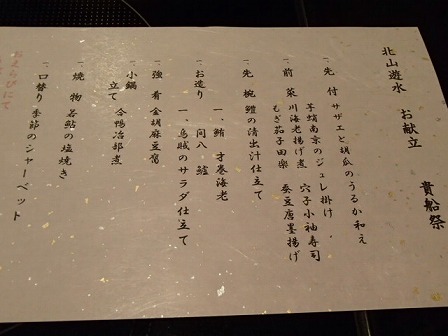 北山遊水 お献立 貴船祭
一、先付 サザエと胡瓜のうるか和え
芋蛸南京のジュレ掛け 穴子小袖寿司
一、前菜 川海老揚げ煮 蚕豆唐墨揚げ
もぎ茄子田楽
一、先椀 鱧の清出汁仕立て
一、お造り 一、鮪 才巻海老
間八 鱸
一、烏賊のサラダ仕立て
一、強肴 金胡麻豆腐
一、小鍋立て 合鴨冶部煮
一、焼物 若鮎の塩焼き
一、口替り 季節のシャーベット
おえらびにて